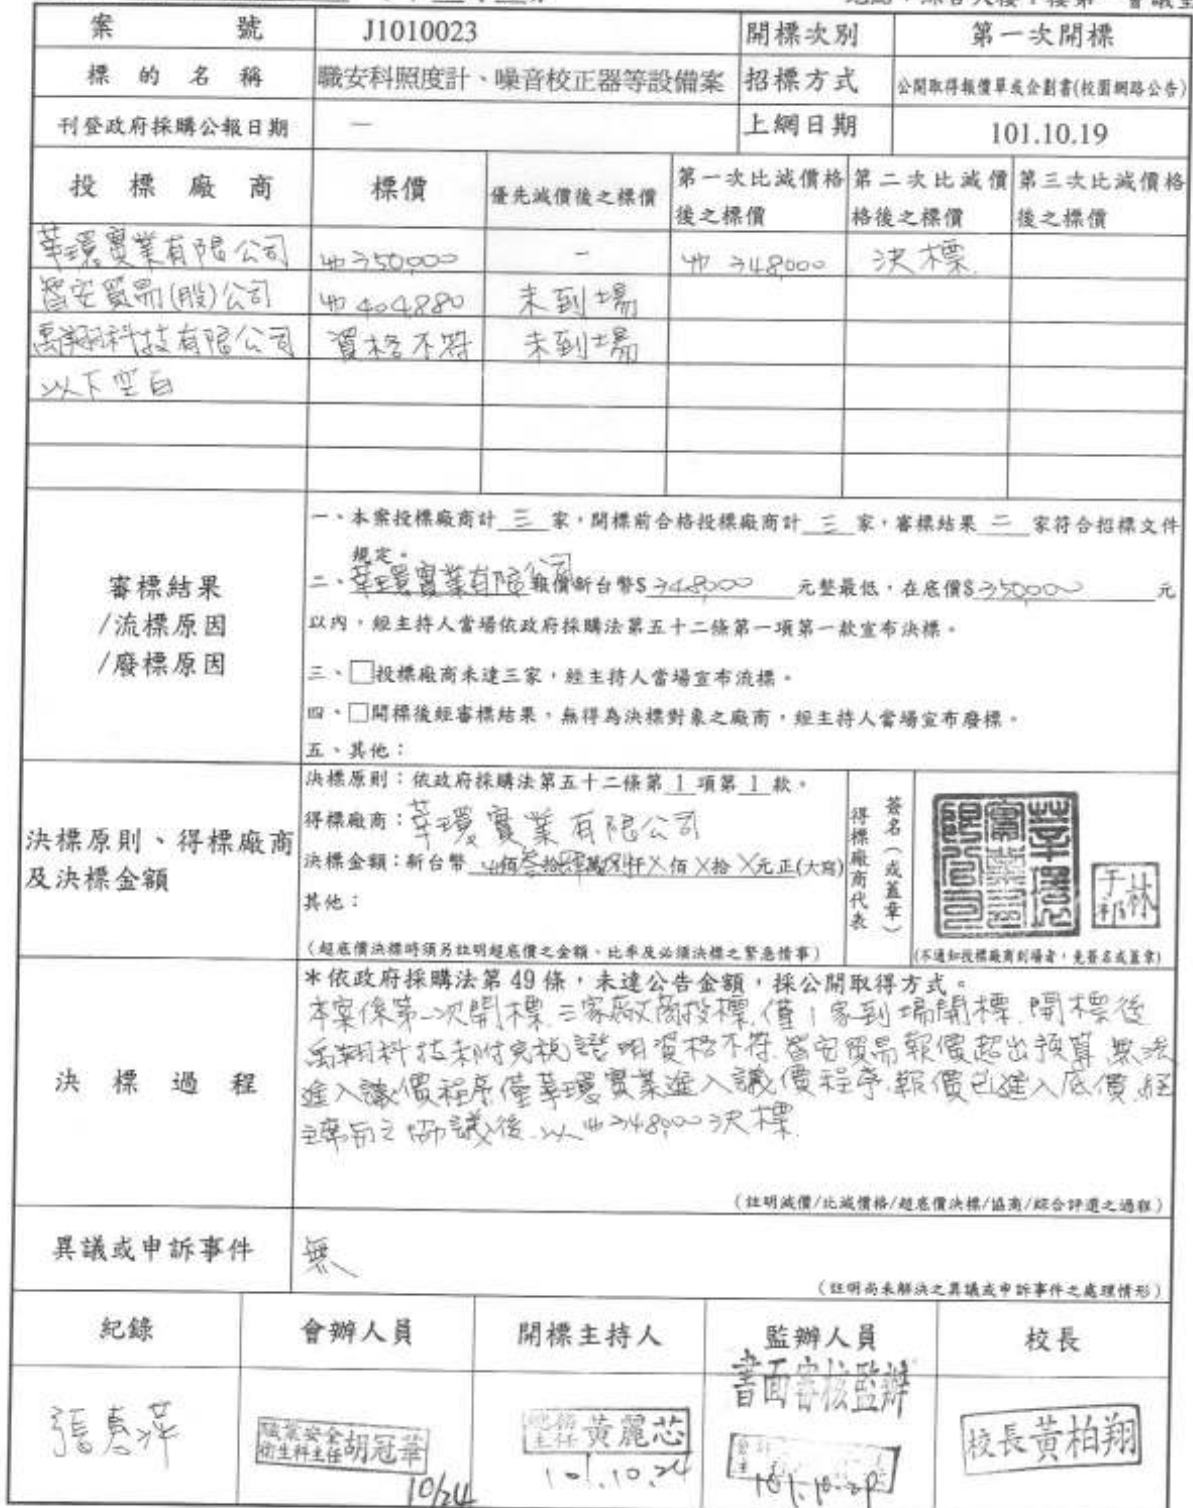 案號 J1010023 開標次別 第一次開標
標的名稱 職安科照度計、噪音校正器等設備案 招標方式 公開取得報價單或企劃書(校園網路公告)
刊登政府採購公報日期 — 上網日期 101.10.19
投標廠商 標價 優先減價後之標價 第一次比減價格後之標價 第二次比減價格後之標價 第三次比減價格後之標價
莘環實業有限公司 350000 - 348000 決標
皆安貿易(股)公司 404880 未到場
禹翔科技有限公司 資格不符 未到場
以下空白
審標結果
/流標原因
/廢標原因
一、本案投標廠商計 三 家,開標前合格投標廠商計 三 家,審標結果 二 家符合招標文件
規定。
二、莘環實業有限公司報價新台幣$348000 元整最低,在底價$350000 元
以內,經主持人當場依政府採購法第五十二條第一項第一款宣布決標。
三、□投標廠商未達三家,經主持人當場宣布流標。
四、□開標後經審標結果,無得為決標對象之廠商,經主持人當場宣布廢標。
五、其他:
決標原則、得標廠商
及決標金額
決標原則:依政府採購法第五十二條第 1 項第 1 款。
得標廠商:莘環實業有限公司
決標金額:新台幣 佰參拾肆萬捌仟X佰X拾X元正(大寫)
其他:
(超底價決標時須另註明超底價之金額、比率及必須決標之緊急情事)
得標廠商代表
簽名(或蓋章)
莘環實業有限公司
林
(不通知投標廠商到場者,免簽名或蓋章)
決標過程
*依政府採購法第 49 條,未達公告金額,採公開取得方式。
本案係第一次開標,三家廠商投標,僅1家到場開標,開標後
禹翔科技未附完稅證明資格不符,皆安貿易報價超出預算,無法
進入議價程序僅莘環實業進入議價程序,報價已進入底價,經
協議後,以348000決標.
(註明減價/比減價格/超底價決標/協商/綜合評選之過程)
異議或申訴事件 無
(註明尚未解決之異議或申訴事件之處理情形)
紀錄 會辦人員 開標主持人 監辦人員 校長
書面審核監辦
張惠萍
職業安全
衛生科主任 胡冠華
10/24
總務
主任 黃麗芯
101.10.24
校長黃柏翔